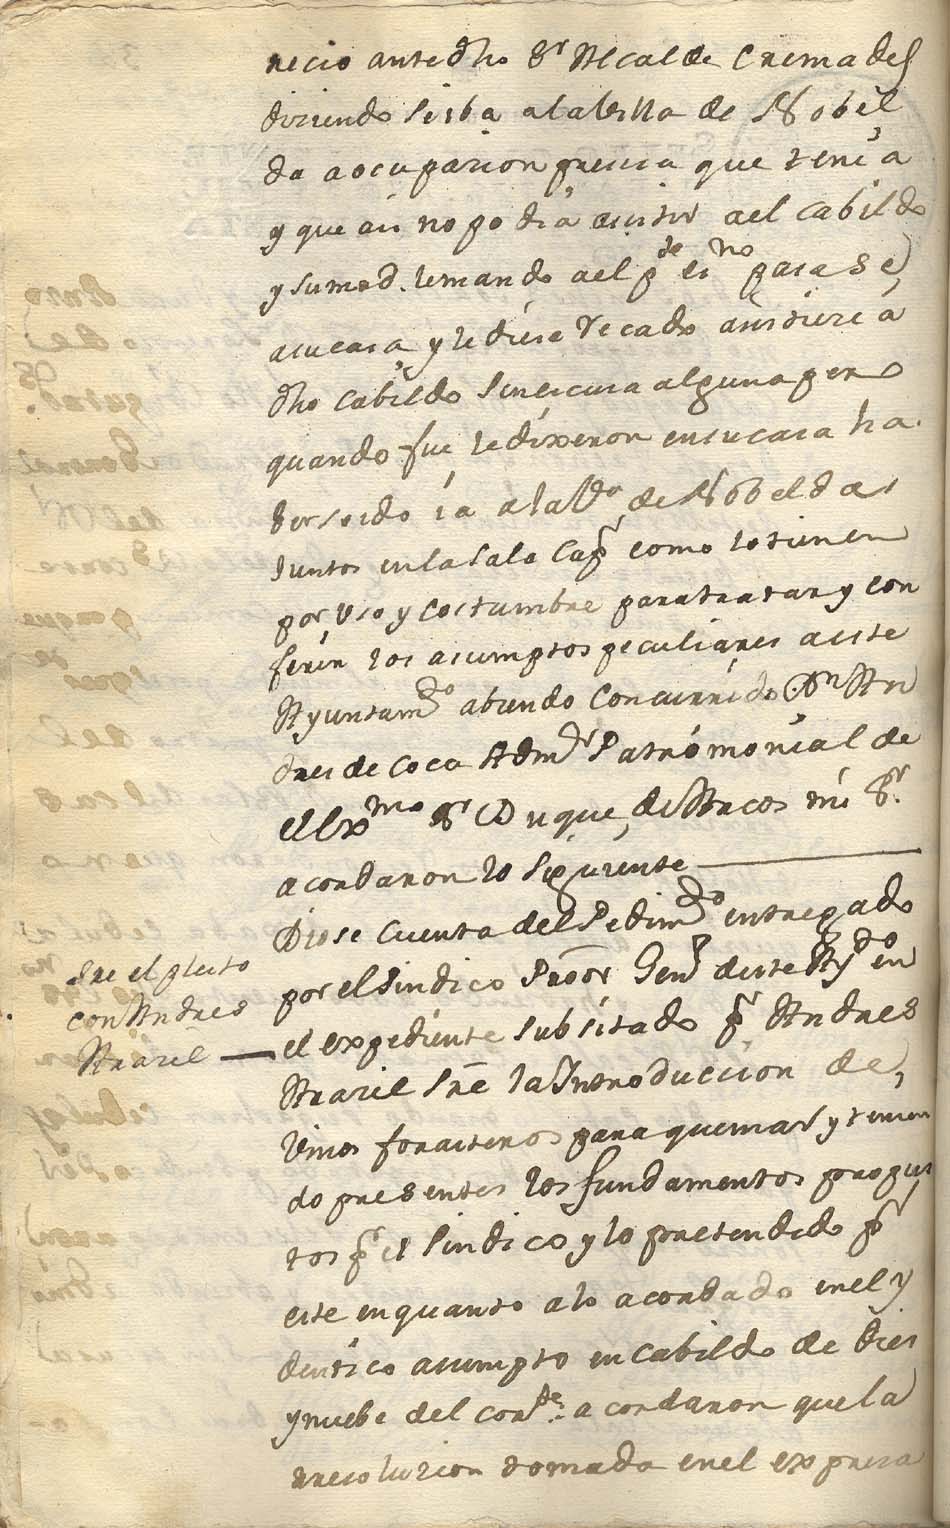 recio ante dho Sr Alcalde Cremades
diziendo se iba a la Villa de Nobel
da a ocupazion precisa que tenia
y que asi no podia asistir ael Cabildo
y sumd. Mando ael pte esno pasase
a su casa, y le diese recado asistiese a
dho Cabildo sin escusa alguna pero
quando fue le dixeron en su casa ha
verse ido ia a la Va de Nobelda
Juntos en la Sala Capr como lo tienen
por uso y costumbre para tratar y con
ferir los asumptos peculiares a este
Ayuntamto abiendo Concurrido Dn An
dres de Coca Admor Patrimonial de
el Exmo Sr Duque de Arcos mi Sr.
acordaron lo siguiente
Sre el pleito
con Andres
Arazil
Diose Cuenta del Pedimto entregado
por el Sindico Prõor Genl de este Aymto en
el expediente subsitado pr Andres
Arazil sre la Introduccion de
Vinos forasteros para quemar, y tenien
do presentes los fundamentos propues
tos pr el Sindico y lo pretendido pr
este en quanto a lo acordado en el y
dentico asumpto en Cabildo de Diez
y nuebe del corrte: acordaron que la
rresoluzion tomada en el expresa